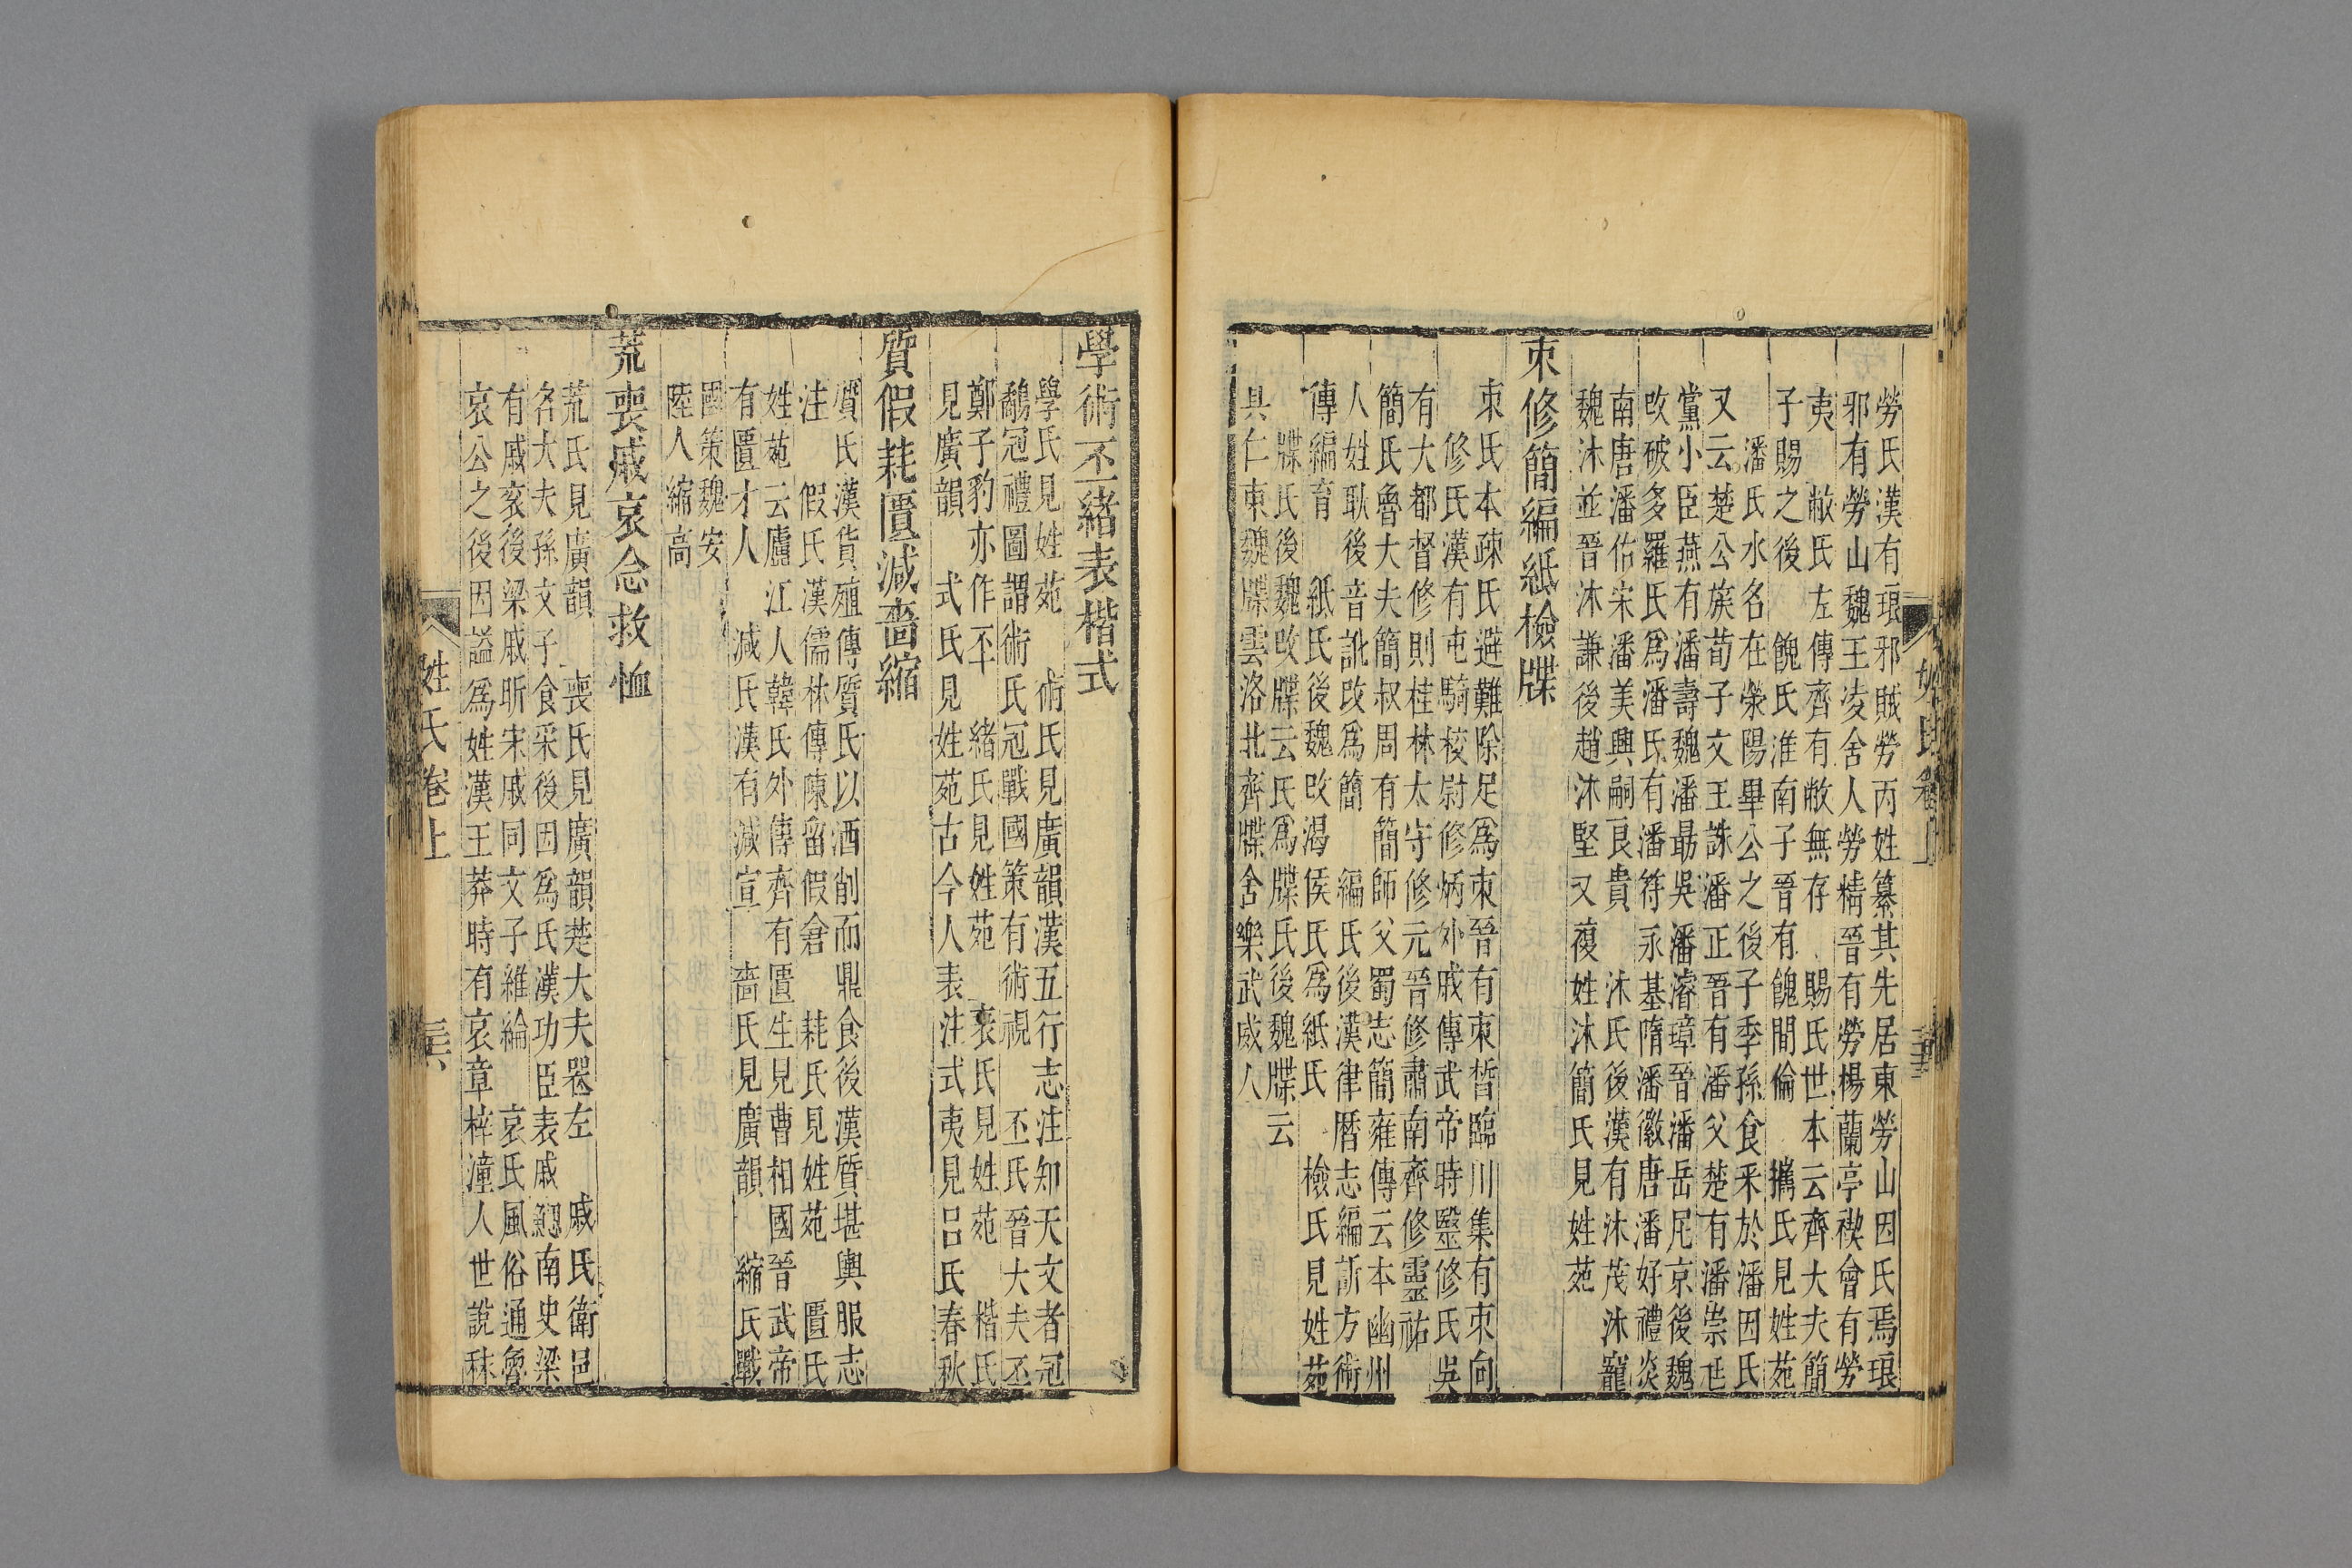 勞氏漢有琅邪賊勞丙姓纂其先居東勞山因氏焉琅
邪有勞山魏王凌舍人勞精晉有勞楊蘭亭禊會有勞
夷 敝氏左傳齊有敝無存 賜氏世本云齊大夫簡
子賜之後 餽氏淮南子晉有餽間倫 攜氏見姓苑
潘氏水名在滎陽畢公之後子季孫食采於潘因氏
又云楚公族荀子文王誅潘正晉有潘父楚有潘崇尫
黨小臣燕有潘壽魏潘最吳潘濬璋晉潘岳尼京後魏
改破多羅氏爲潘氏有潘符永基隋潘徽唐潘好禮炎
南唐潘佑宋潘美興嗣良貴 沐氏後漢有沐茂沐寵
魏沐並晉沐謙後趙沐堅又複姓沐簡氏見姓苑
朿修簡編紙檢牒
朿氏本疎氏避難除足爲朿晉有朿晳臨川集有朿向
修氏漢有屯騎校尉修炳外戚傳武帝時毉修氏吳
有大都督修則桂林太守修元晉修肅南齊修靈祐
簡氏魯大夫簡叔周有簡師父蜀志簡雍傳云本幽州
人姓耿後音訛改爲簡 編氏後漢律曆志編訢方術
傳編育 紙氏後魏改渴侯氏爲紙氏 檢氏見姓苑
牒氏後魏改牒云氏爲牒氏後魏牒云
具仁東魏牒雲洛北齊牒舍樂武威人
姓氏卷上
學術丕緒表楷式
學氏見姓苑 術氏見廣韻漢五行志注知天文者冠
鷸冠禮圖謂術氏冠戰國策有術視 丕氏晉大夫丕
鄭子豹亦作㔻 緒氏見姓苑 表氏見姓苑 楷氏
見廣韻 式氏見姓苑古今人表注式夷見呂氏春秋
質假耗匱減嗇縮
質氏漢貨殖傳質氏以洒削而鼎食後漢質堪輿服志
注 假氏漢儒林傳陳留假倉 耗氏見姓苑 匱氏
姓苑云廬江人韓氏外傳齊有匱生見曹相國晉武帝
有匱才人 減氏漢有減宣 嗇氏見廣韻 縮氏戰
國策魏安
陸人縮高
荒喪戚哀念救恤
荒氏見廣韻 喪氏見廣韻楚大夫喪左 戚氏衛邑
名大夫孫文子食采後因爲氏漢功臣表戚鰓南史梁
有戚衮後梁戚昕宋戚同文子維綸 哀氏風俗通魯
哀公之後因謚爲姓漢王莽時有哀章梓潼人世說秣
姓氏卷上